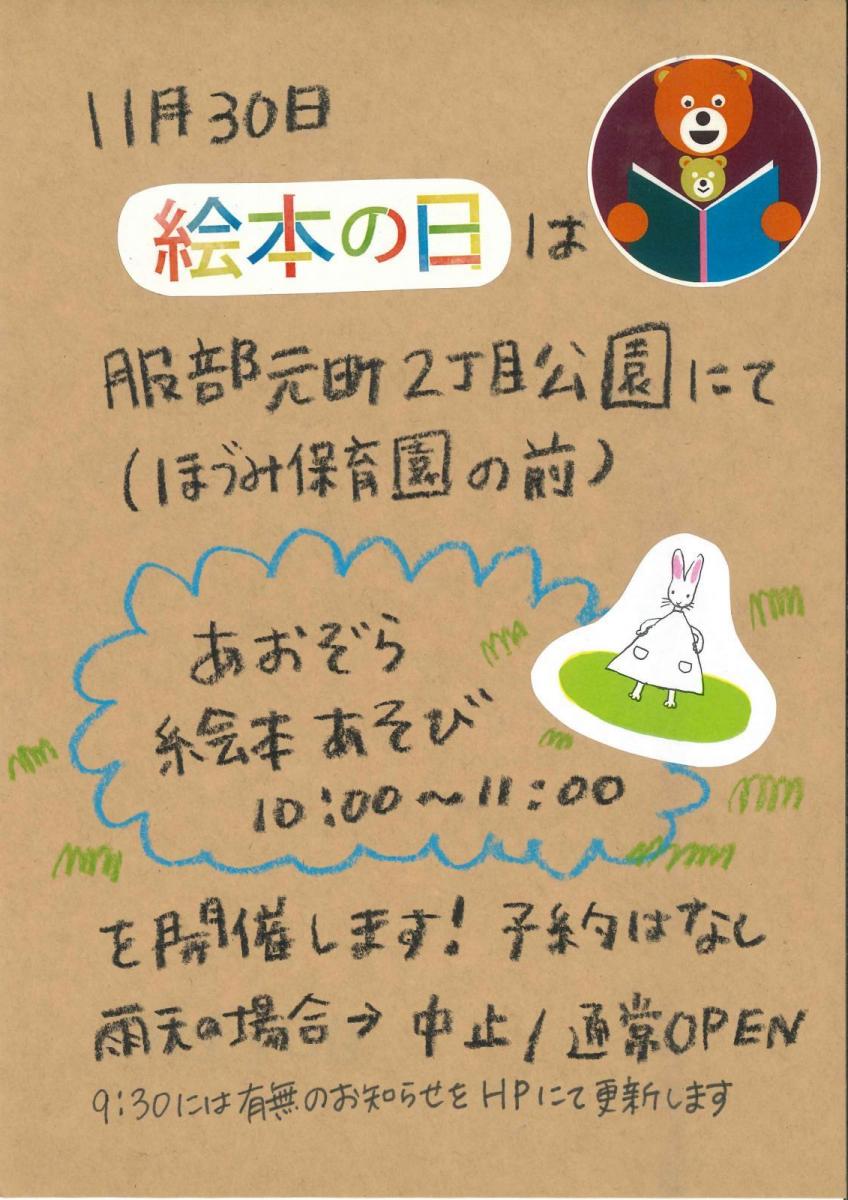 11月30日
絵本の日は
服部元町2丁目公園にて
(ほづみ保育園の前)
あおぞら
絵本あそび
10:00～11:00
を開催します!予約はなし
雨天の場合→中止/通常OPEN
9:30には有無のお知らせをHPにて更新します